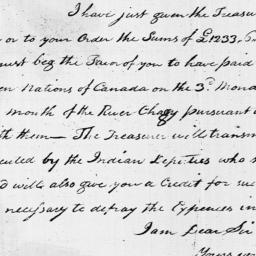 I have just given the Treasur
or to your Order the Sums of £1233,
must beg the favor of you to have paid
en Nations of Canada on the 3d. Mond
mouth of the River Chazy pursuant
th them — The Treasurer will transm
cuted by the Indian Deputies who s
d will also give you a Credit for su
necessary to defray the Expences in
I am Dear Sir
Yours